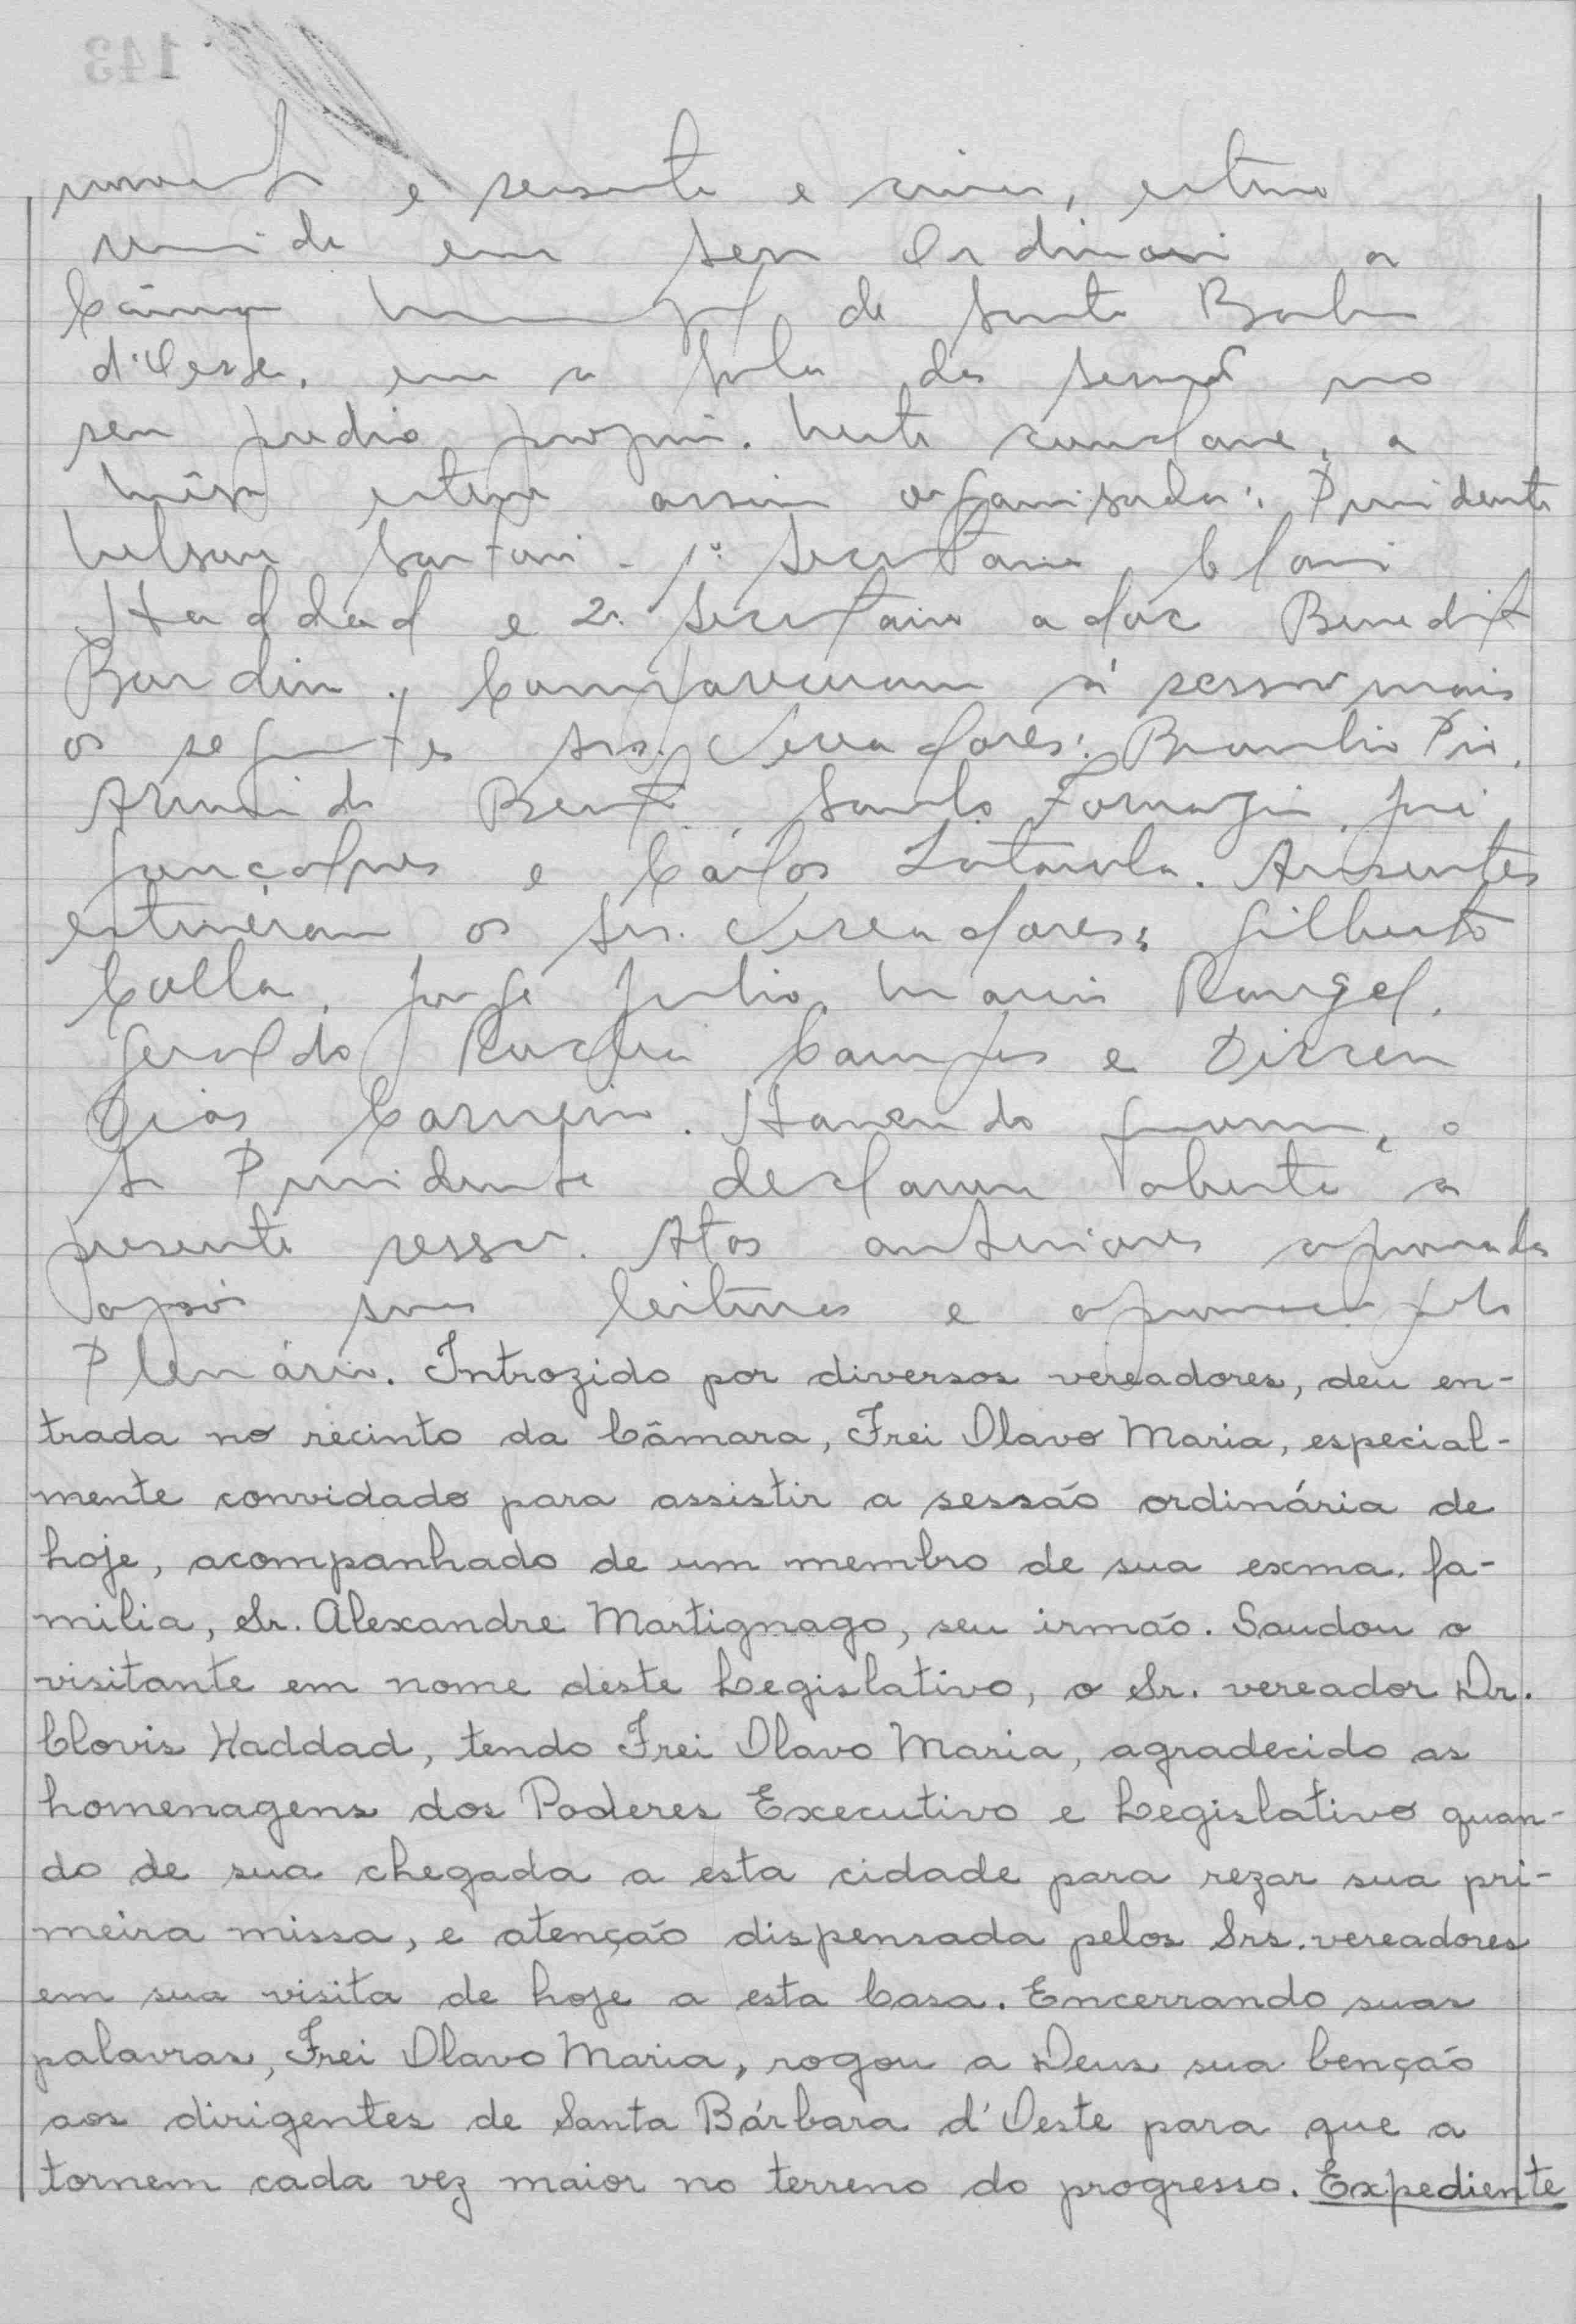 e sessenta e cinco, esteve
reunida em sessão Ordinaria a
Câmara Municipal de Santa Barbara
d'Oeste, em a sala das sessões no
seu predio proprio. Neste conclave, a
Mêsa esteve assim organisada: Presidente
Nelson 1º Secretario Clovis
Haddad e 2º Secretario adoc Benedito
Bordin. Compareceram à sessão mais
os seguintes srs. Vereadores: Braulio Pio,
Bento, Santo Fornazin, José
Gonçalves e Carlos. Ausentes
estiveram os srs. Vereadores: Gilberto
Colla, Jorge Julio, Mario Rangel,
Geraldo Rocha Campos e Dirceu
Dias Carneiro. Havendo quorum, o
Sr Presidente declarou aberta a
presente sessão. Atas anteriores aprovadas
após suas leituras e pelo
Plenário. Introzido por diversos vereadores, deu en-
trada no recinto da Câmara, Frei Olavo Maria, especial-
mente convidado para assistir a sessão ordinária de
hoje, acompanhado de um membro de sua exma. fa-
milia, Sr. Alexandre Martignago, seu irmão. Saudou o
visitante em nome deste Legislativo, o Sr. vereador Dr.
Clovis Haddad, tendo Frei Olavo Maria, agradecido as
homenagens dos Poderes Executivo e Legislativo quan-
do de sua chegada a esta cidade para rezar sua pri-
meira missa, e atenção dispensada pelos Srs. vereadores
em sua visita de hoje a esta Casa. Encerrando suas
palavras, Frei Olavo Maria, rogou a Deus sua benção
aos dirigentes de Santa Bárbara d'Oeste para que a
tornem cada vez maior no terreno do progresso. Expediente